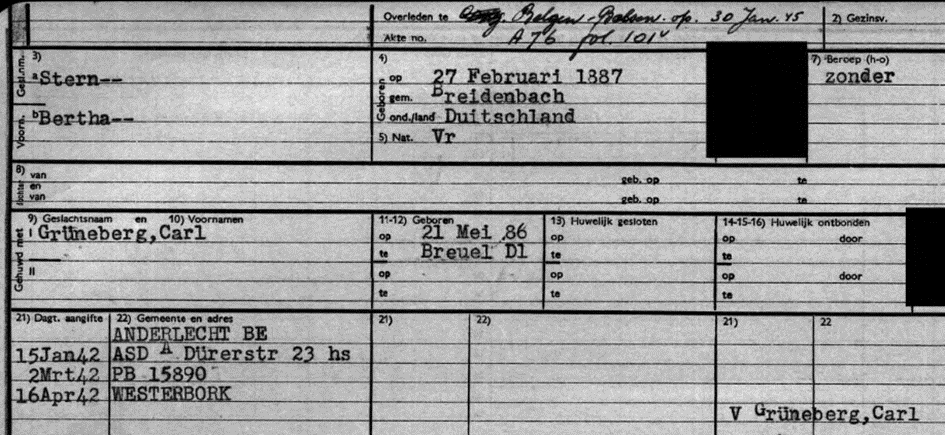 Overleden te Bergen-Belsen. op. 30 Jan. 45 2) Gezinsv.
Akte no. A 76 fol. 101v
Gesl.nm. 3) 4) 7) Beroep (h-o)
a Stern-- op 27 Februari 1887 zonder
Geboren gem. Breidenbach
Voorn. b Bertha-- ond./land Duitschland
5) Nat. Vr
8) van geb. op te
en
van geb. op te
9) Geslachtsnaam en 10) Voornamen 11-12) Geboren 13) Huwelijk gesloten 14-15-16) Huwelijk ontbonden
Gehuwd met I Grüneberg,Carl op 21 Mei 86 op op door
te Breuel Dl te te
II op op op door
te te te
21) Dagt. aangifte 22) Gemeente en adres 21) 22) 21) 22
ANDERLECHT BE
15Jan42 ASD A Dürerstr 23 hs
2Mrt42 PB 15890
16Apr42 WESTERBORK
V Grüneberg,Carl